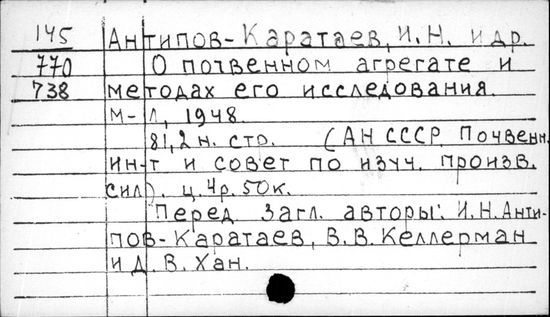 145 Антипов-Каратаев, И.Н. и др.
770 О почвенном агрегате и
738 методах его исследования.
М-Л, 1948.
81,2 н. стр. (АН СССР Почвенн.
ин-т и совет по изуч. произв.
сил). ц. 4р. 50к.
Перед загл. авторы: И.Н.Анти-
пов-Каратаев, В.В.Келлерман
и Д.В.Хан.